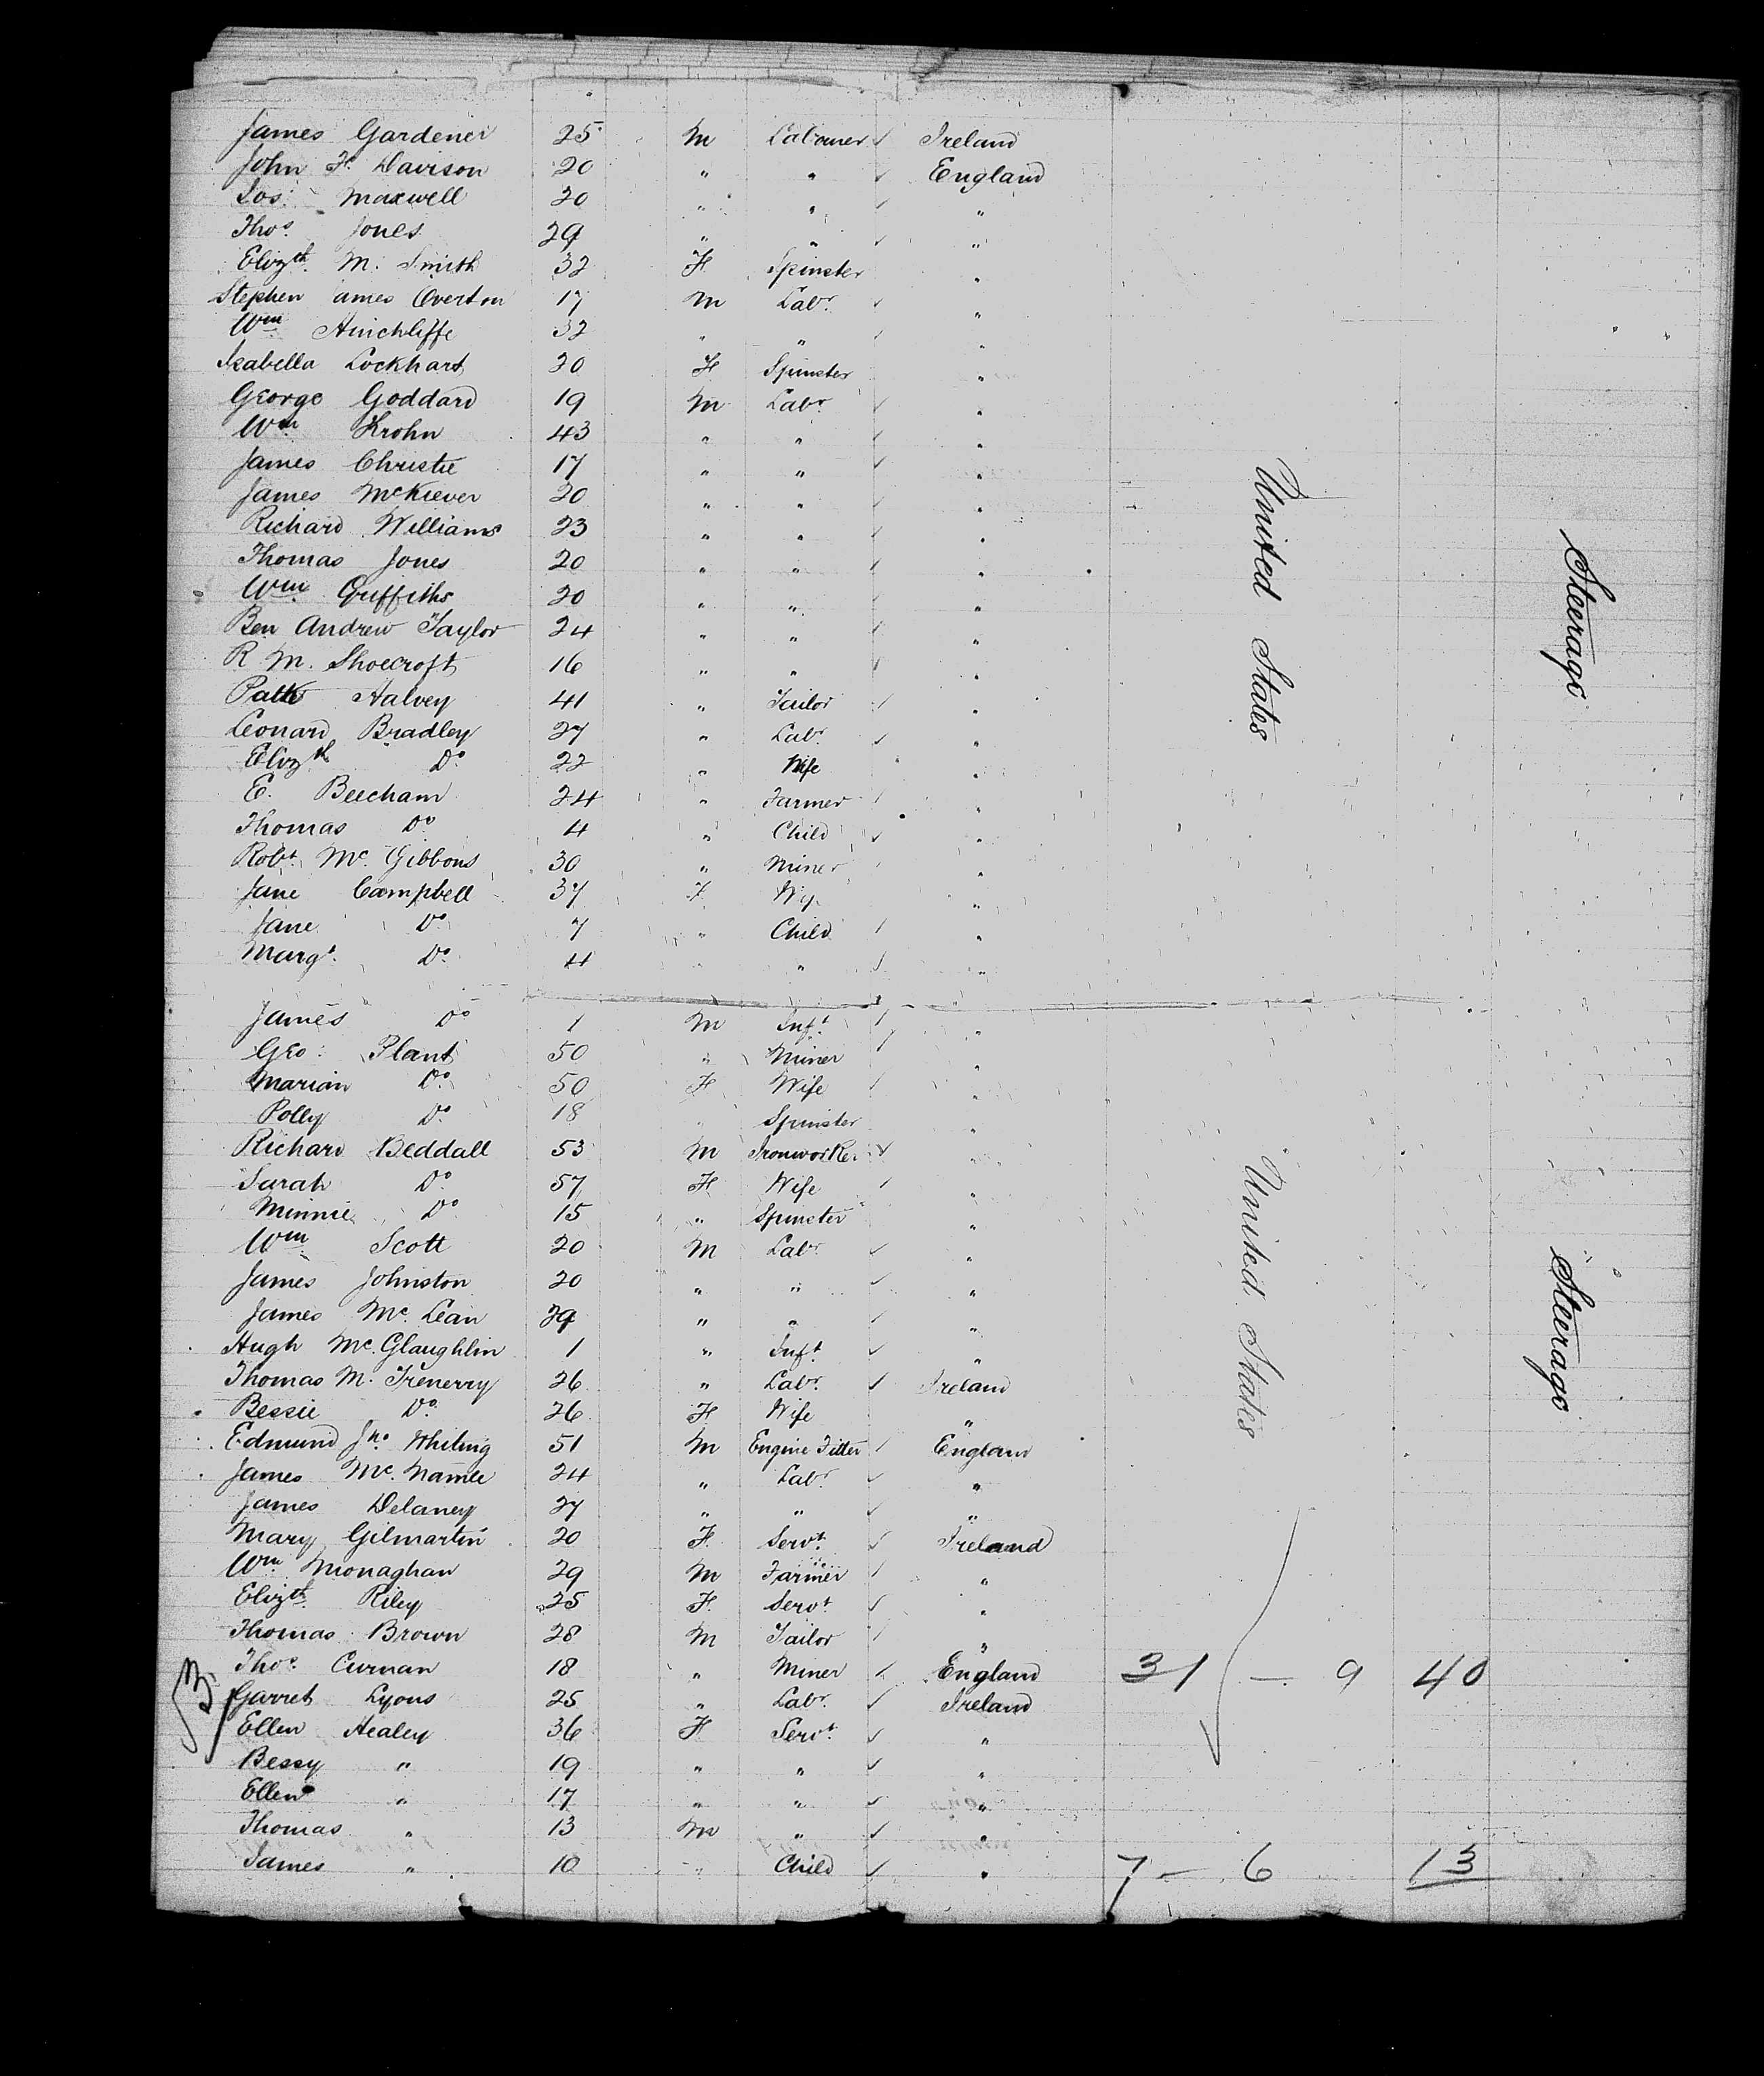 James Gardener 25 M Labourer ✓ Ireland
John F. Davison 20 " " ✓ England
Jos: Maxwell 20 " " ✓ "
Thos. Jones 29 " " ✓ "
Elizth. M. Smith 32 F Spinster "
Stephen James Overton 17 M Labr. ✓ "
Wm Hinchliffe 32 " " ✓ "
Isabella Lockhart 20 F Spinster "
George Goddard 19 M Labr. ✓ "
Wm Krohn 43 " " ✓ "
James Christie 17 " " ✓ "
James McKiever 20 " " ✓ "
Richard Williams 23 " " ✓ "
Thomas Jones 20 " " ✓ "
Wm Griffiths 20 " " ✓ "
Ben Andrew Taylor 24 " " ✓ "
R M. Shoecroft 16 " " ✓ "
Patk Halvey 41 " Tailor ✓ "
Leonard Bradley 27 " Labr ✓ "
Elizth Do. 22 " Wife "
E. Beecham 24 " Farmer ✓ "
Thomas Do 4 " Child ✓ "
Robt. Mc. Gibbons 30 " Miner ✓ "
Jane Campbell 37 F "
Jane Do. 7 " Child ✓ "
Margt. Do. 4 " " ✓ "
United States
Steerage
James Do 1 M Inft. ✓ "
Geo: Plant 50 " Miner ✓ "
Marian Do. 50 F Wife ✓ "
Polly Do. 18 " Spinster "
Richard Beddall 53 M Ironworker ✓ "
Sarah Do. 57 F Wife ✓ "
Minnie Do 15 " Spinster "
Wm Scott 20 M Labr ✓ "
James Johnston 20 " " ✓ "
James Mc. Lean 29 " " ✓ "
Hugh Mc. Glaughlin 1 " Inft. ✓ "
Thomas M. Trenerry 26 " Labr. ✓ Ireland
Bessie Do. 26 F Wife "
Edmund Jno. Whiting 51 M Engine Fitter ✓ England
James Mc. Namee 24 " Labr ✓ "
James Delaney 27 " " ✓ "
Mary Gilmartin 20 F. Servt. ✓ Ireland
Wm. Monaghan 29 M Farmer ✓ "
Elizth. Riley 25 F. Servt. ✓ "
Thomas Brown 28 M Tailor ✓ "
Thos. Curnan 18 " Miner ✓ England 31 — 9 40
Garret Lyons 25 " Labr. ✓ Ireland
Ellen Healey 36 F Servt. ✓ "
Bessy " 19 " " ✓ "
Ellen " 17 " " ✓ "
Thomas " 13 M " ✓ "
James " 10 " Child ✓ " 7 — 6 13
United States
Steerage